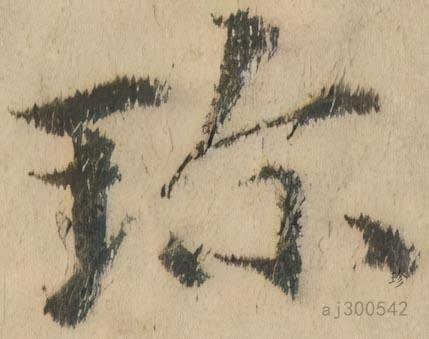 珎
珍
aj300542